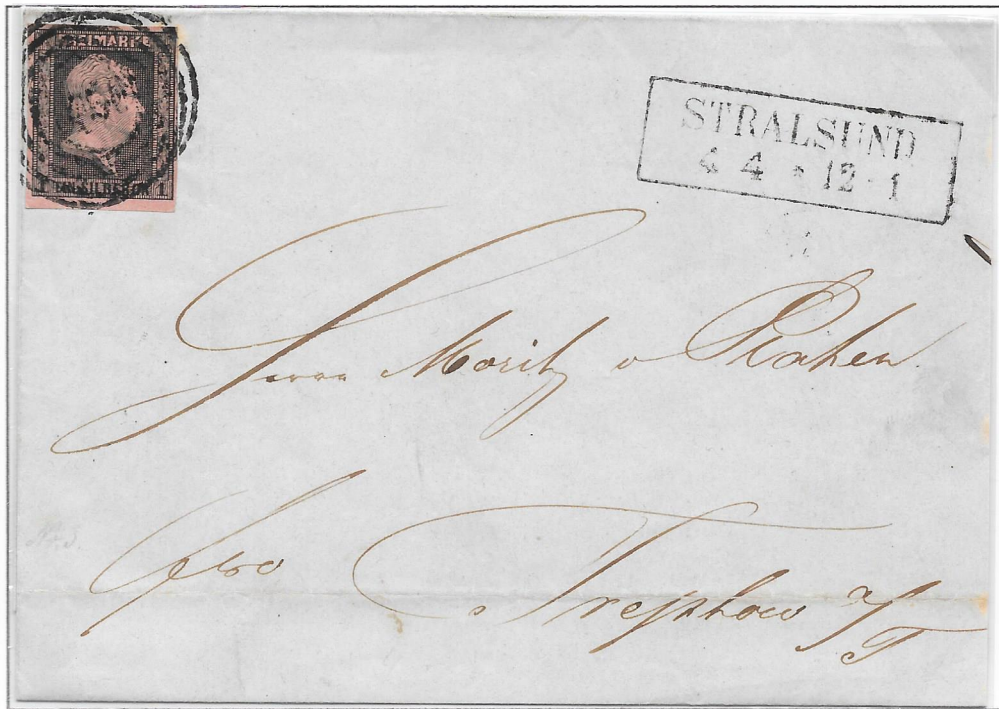 FREIMARKE
1 EIN SILBERGR. 1
STRALSUND
4 4 * 12-1
Herrn Moritz v
fro
Treptow a/T